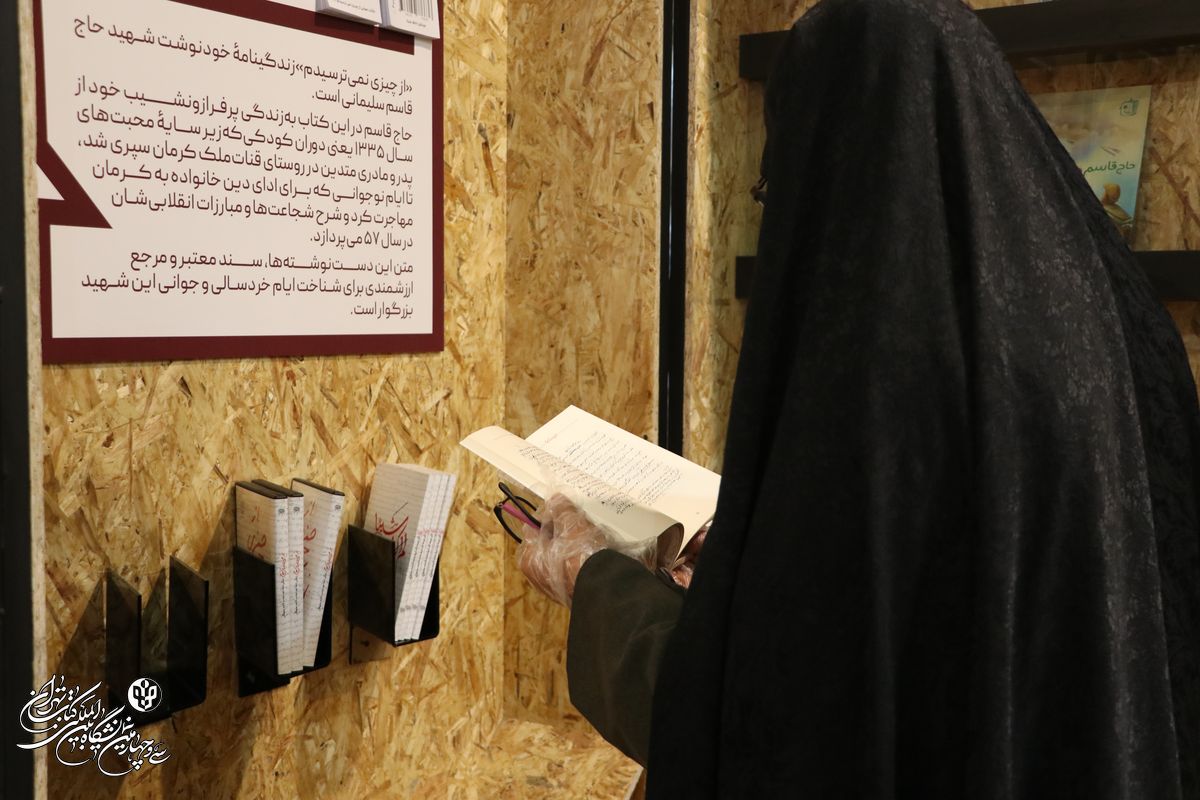 «از چیزی نمی‌ترسیدم» زندگینامهٔ خودنوشت شهید حاج
قاسم سلیمانی است.
حاج قاسم در این کتاب به زندگی پر فراز و نشیب خود از
سال ۱۳۳۵ یعنی دوران کودکی که زیر سایهٔ محبت‌های
پدر و مادری متدین در روستای قنات‌ملک کرمان سپری شد،
تا ایام نوجوانی که برای ادای دین خانواده به کرمان
مهاجرت کرد و شرح شجاعت‌ها و مبارزات انقلابی‌شان
در سال ۵۷ می‌پردازد.
متن این دست‌نوشته‌ها، سند معتبر و مرجع
ارزشمندی برای شناخت ایام خردسالی و جوانی این شهید
بزرگوار است.
حاج قاسم
سی و چهارمین نمایشگاه بین‌المللی کتاب تهران